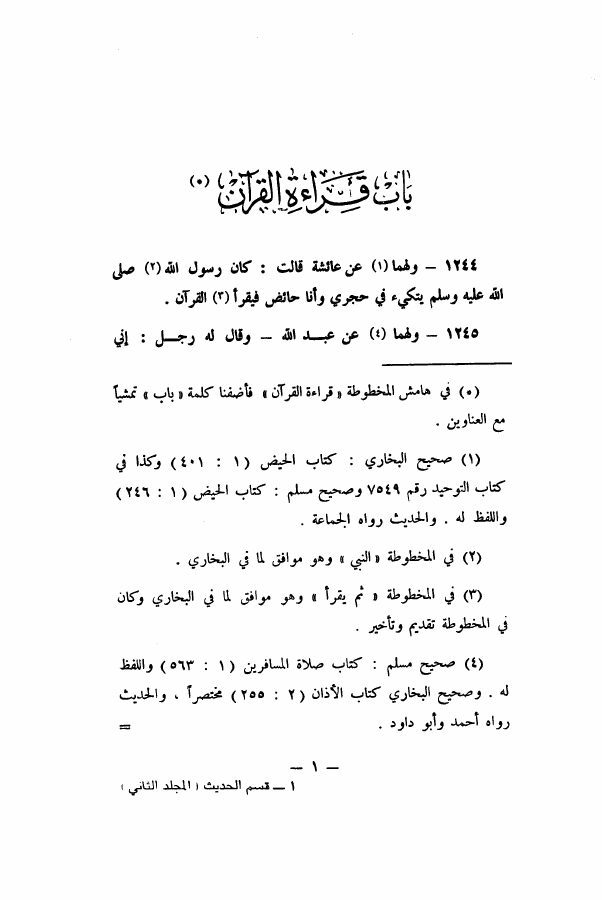 باب قراءة القرآن (٠)
١٢٤٤ – ولهما (١) عن عائشة قالت : كان رسول الله (٢) صلى
الله عليه وسلم يتكيء في حجري وأنا حائض فيقرأ (٣) القرآن .
١٢٤٥ – ولهما (٤) عن عبد الله – وقال له رجل : إني
(٠) في هامش المخطوطة « قراءة القرآن » فأضفنا كلمة « باب » تمشياً
مع العناوين .
(١) صحيح البخاري : كتاب الحيض (١ : ٤٠١) وكذا في
كتاب التوحيد رقم ٧٥٤٩ وصحيح مسلم : كتاب الحيض (١ : ٢٤٦)
واللفظ له . والحديث رواه الجماعة .
(٢) في المخطوطة « النبي » وهو موافق لما في البخاري .
(٣) في المخطوطة « ثم يقرأ » وهو موافق لما في البخاري وكان
في المخطوطة تقديم وتأخير .
(٤) صحيح مسلم : كتاب صلاة المسافرين (١ : ٥٦٣) واللفظ
له . وصحيح البخاري كتاب الأذان (٢ : ٢٥٥) مختصراً ، والحديث
رواه أحمد وأبو داود . =
– ١ –
١ – قسم الحديث ( المجلد الثاني )